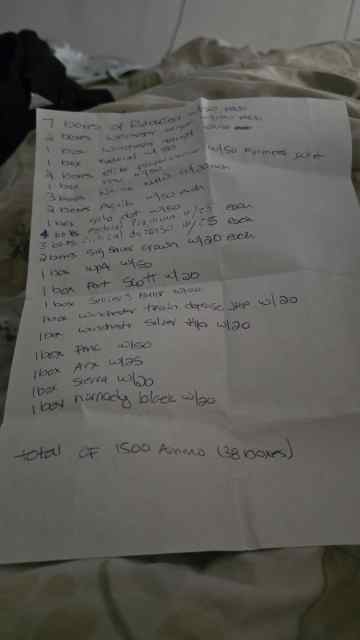 7 boxes of Radical w/50 each
2 boxes Winchester target w/100 each
1 box Winchester
1 box Federal w/50
4 boxes elite performance w/50 rounds each
1 box w/50
3 boxes w/20 each
2 boxes Aguila w/50 each
1 box gold dot w/50
4 boxes Federal Premium w/25 each
3 boxes critical defense w/25 each
2 boxes Sig Sauer crown w/20 each
1 box WPA w/50
1 box Port Scott w/20
1 box w/20
1 box Winchester train defense JHP w/20
1 box Winchester Silver tip w/20
1 box PMC w/50
1 box Arx w/25
1 box Sierra w/20
1 box hornady black w/20
total OF 1500 Ammo (38 boxes)